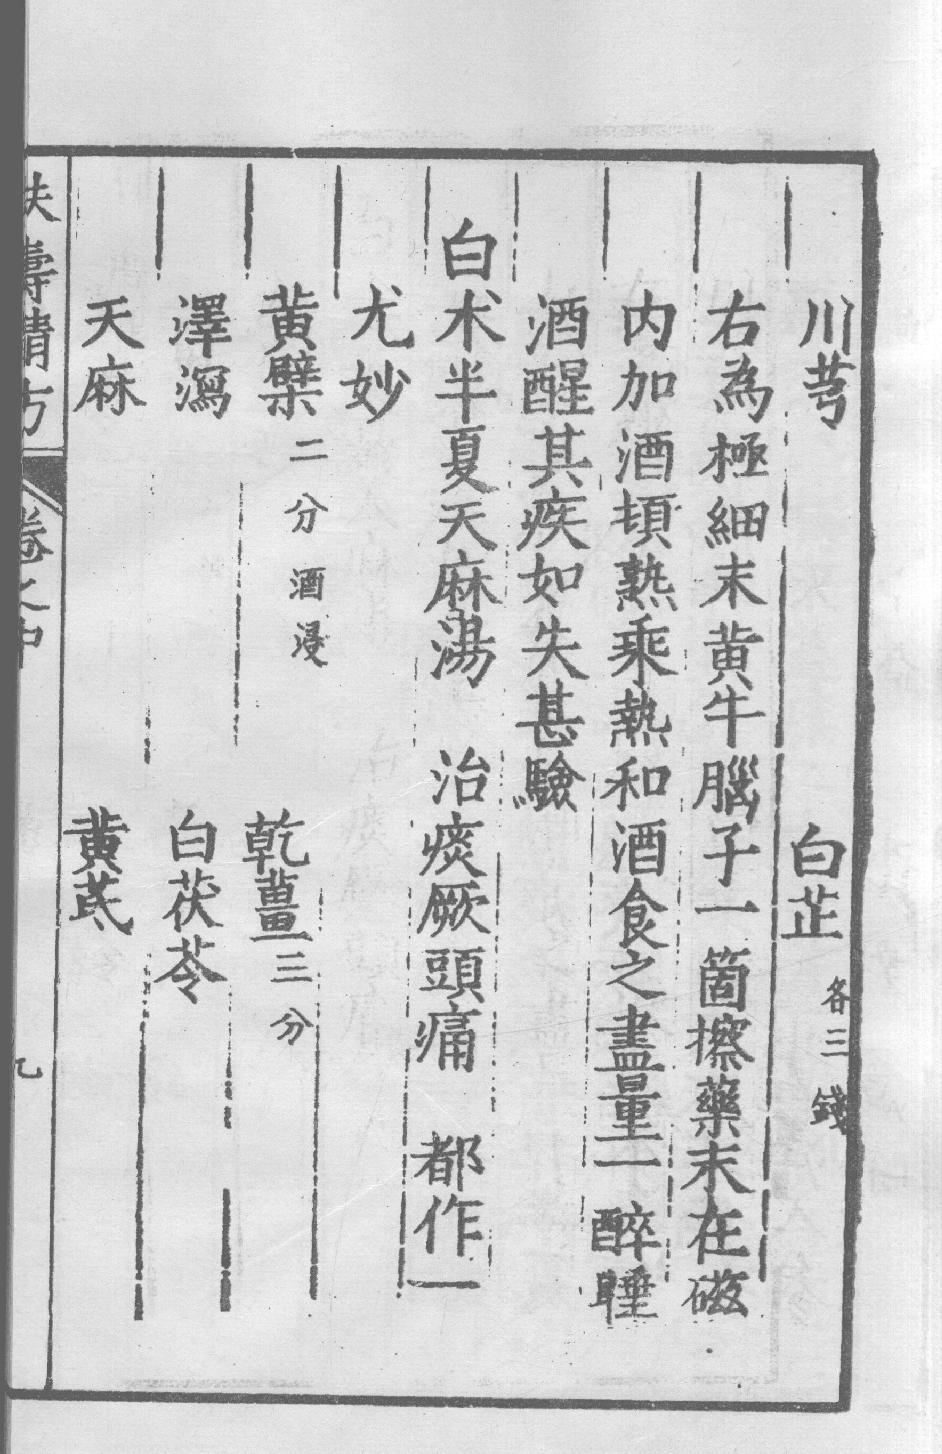 川芎　白芷各三錢
右為極細末黄牛腦子一箇擦藥末在磁
内加酒頓熟乘熱和酒食之盡量一醉睡
酒醒其疾如失甚驗
白朮半夏天麻湯　治痰厥頭痛　都作一
尤妙
黄檗二分酒浸　乾薑三分
澤瀉　白茯苓
天麻　黄芪
扶壽精方　卷之中　九